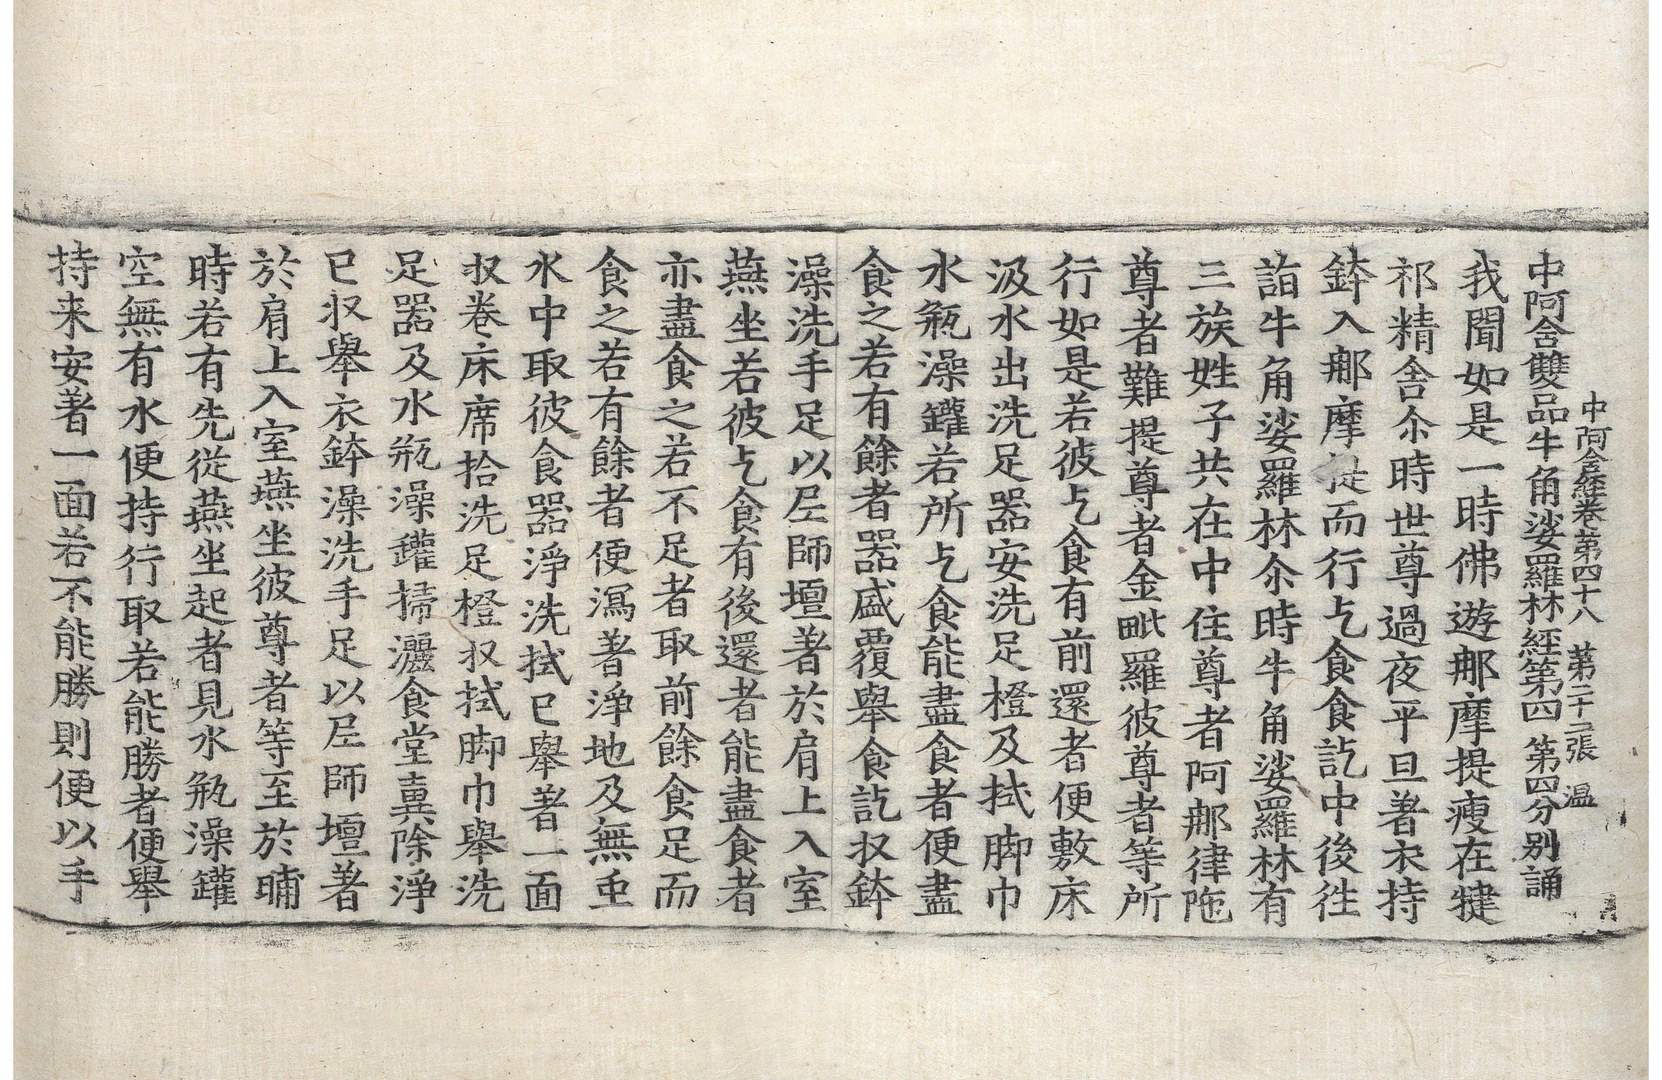 中阿含經卷第四十八 第二十二張 温
中阿含雙品牛角娑羅林經第四 第四分別誦
我聞如是一時佛遊那摩提瘦在揵
祁精舍尒時世尊過夜平旦著衣持
鉢入那摩提而行乞食食訖中後往
詣牛角娑羅林尒時牛角娑羅林有
三族姓子共在中住尊者阿那律陁
尊者難提尊者金毗羅彼尊者等所
行如是若彼乞食有前還者便敷床
汲水出洗足器安洗足橙及拭脚巾
水瓶澡罐若所乞食能盡食者便盡
食之若有餘者器盛覆舉食訖収鉢
澡洗手足以尼師壇著於肩上入室
燕坐若彼乞食有後還者能盡食者
亦盡食之若不足者取前餘食足而
食之若有餘者便瀉著淨地及無虫
水中取彼食器淨洗拭已舉著一面
収卷床席拾洗足橙収拭脚巾舉洗
足器及水瓶澡罐掃灑食堂糞除淨
已収舉衣鉢澡洗手足以尼師壇著
於肩上入室燕坐彼尊者等至於晡
時若有先從燕坐起者見水瓶澡罐
空無有水便持行取若能勝者便舉
持来安著一面若不能勝則便以手